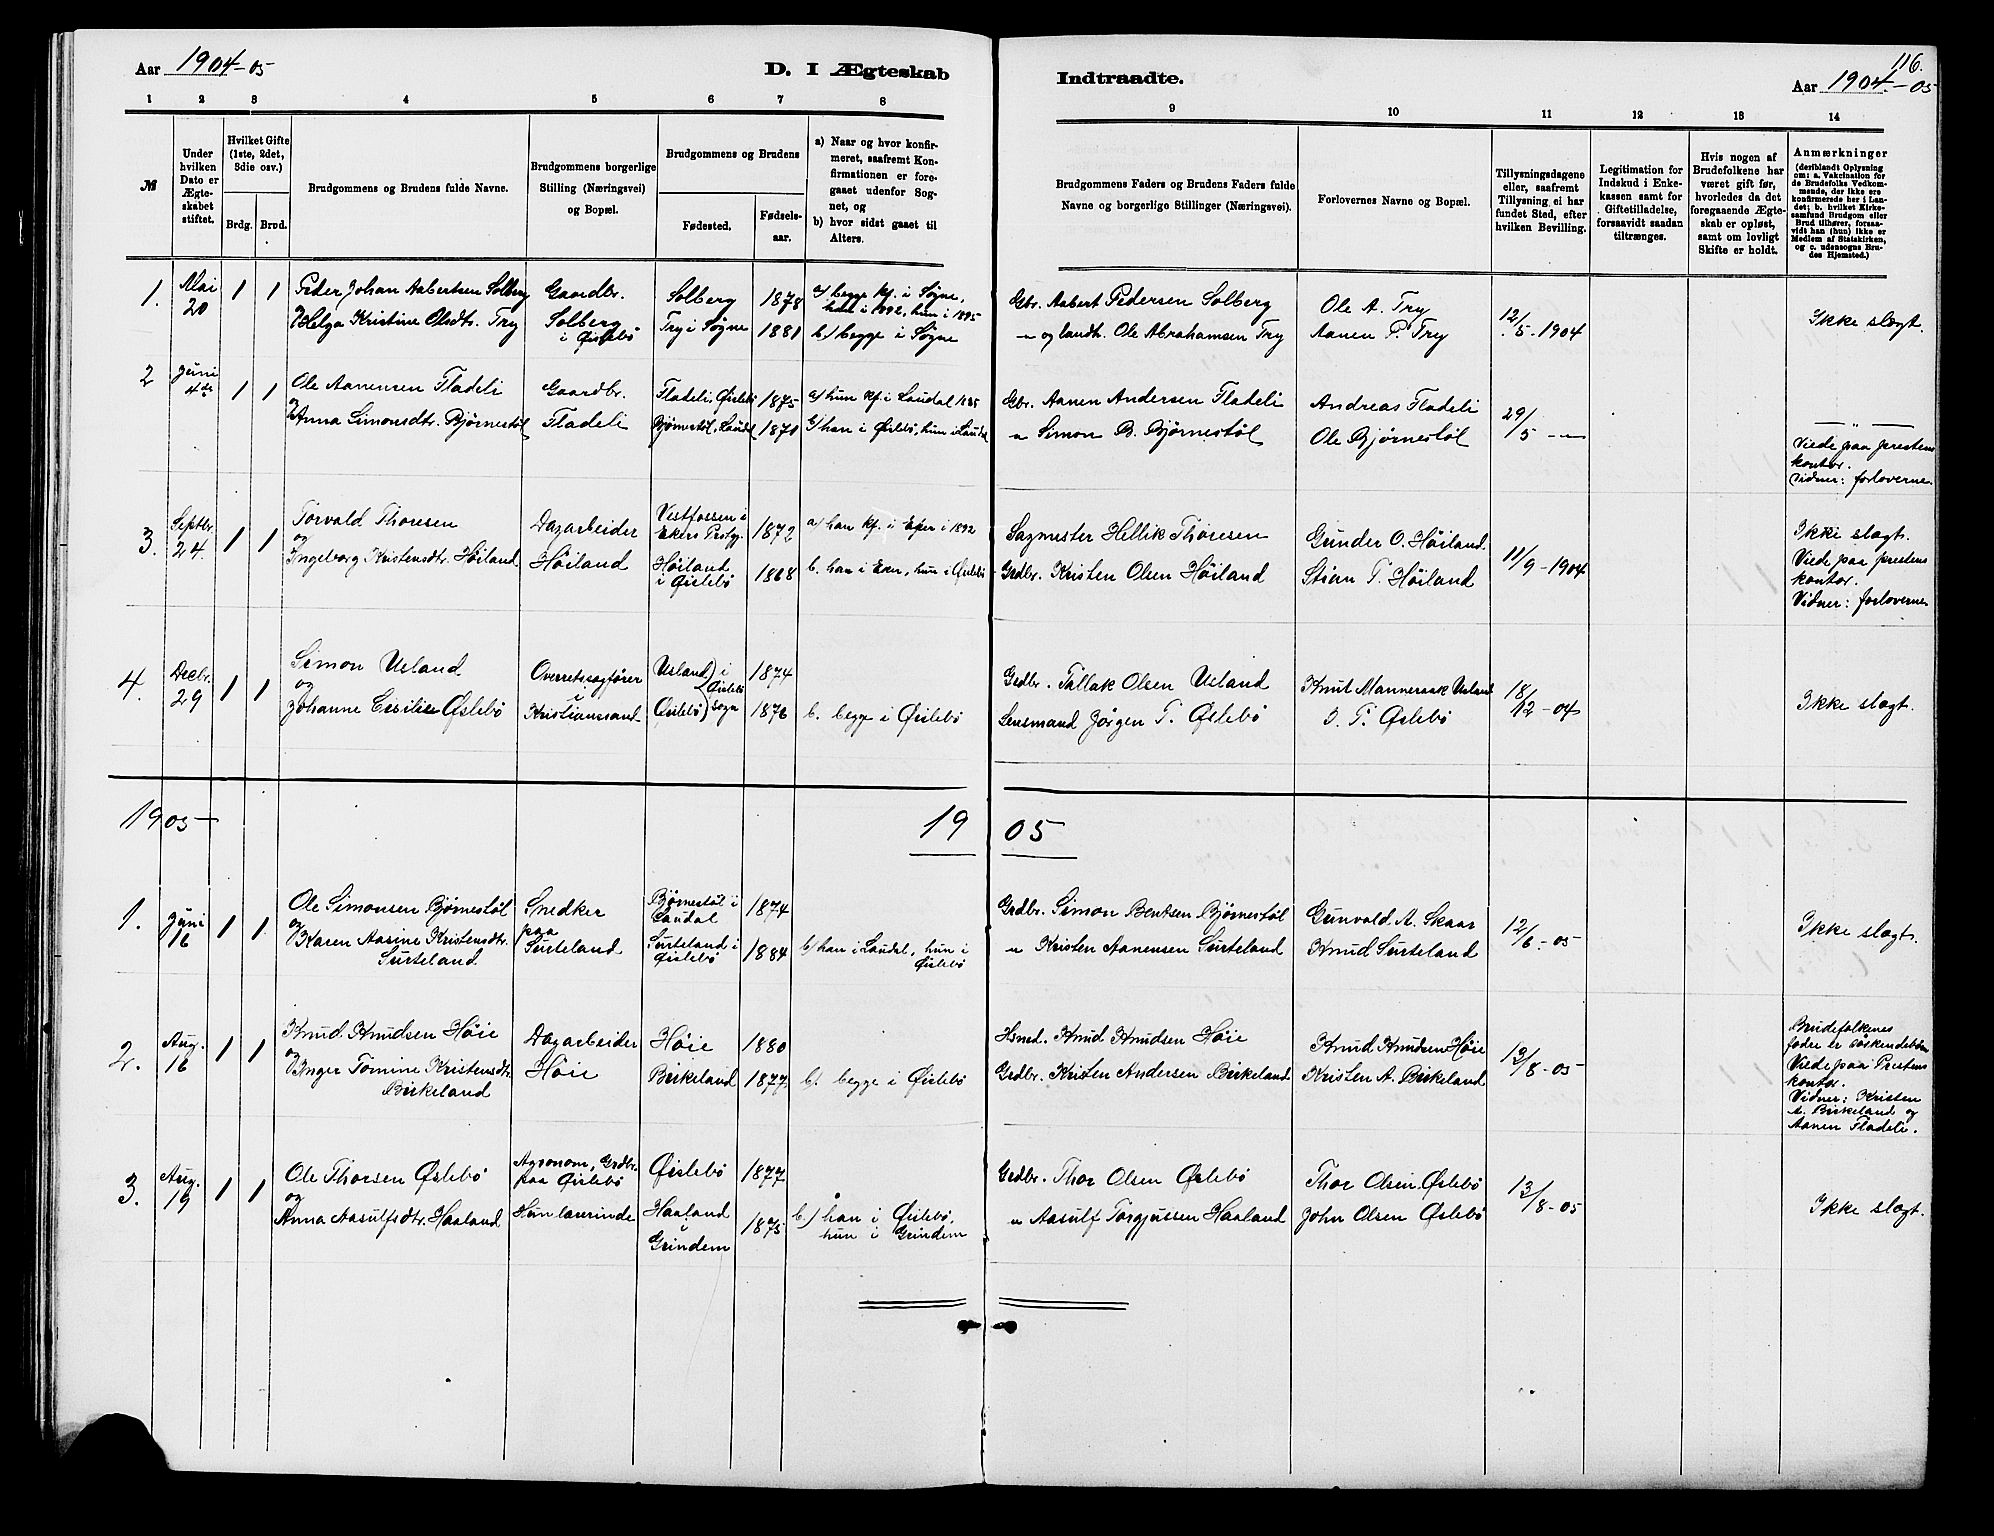 Aar 1904-05
D. I Ægteskab
Indtraadte.
116.
Aar 1904.-05
1 2 3 4 5 6 7 8
9 10 11 12 13 14
№
Under hvilken Dato er Ægteskabet stiftet.
Hvilket Gifte (1ste, 2det, 3die osv.)
Brdg. Brud.
Brudgommens og Brudens fulde Navne.
Brudgommens borgerlige Stilling (Næringsvei) og Bopæl.
Brudgommens og Brudens
Fødested.
Fødsels-aar.
a) Naar og hvor konfirmeret, saafremt Konfirmationen er foregaaet udenfor Sognet, og
b) hvor sidst gaaet til Alters.
Brudgommens Faders og Brudens Faders fulde Navne og borgerlige Stillinger (Næringsvei).
Forlovernes Navne og Bopæl.
Tillysningsdagene eller, saafremt Tillysning ei har fundet Sted, efter hvilken Bevilling.
Legitimation for Indskud i Enkekassen samt for Giftetilladelse, forsaavidt saadan tiltrænges.
Hvis nogen af Brudefolkene har været gift før, hvorledes da det foregaaende Ægteskab er opløst, samt om lovligt Skifte er holdt.
Anmærkninger
(deriblandt Oplysning om: a. Vakcination for de Brudefolks Vedkommende, der ikke ere konfirmerede her i Landet; b. hvilket Kirkesamfund Brudgom eller Brud tilhører, forsaavidt han (hun) ikke er Medlem af Statskirken, og c. udensogns Brudes Hjemsted.)
1. Mai 20 1 1
Peder Johan Aabertsen Solberg
og Helga Kristine Olsdtr. Try
Gaardbr.
Solberg
i Øislebø
Solberg 1878
Try i Søgne 1881
a) begge kf. i Søgne,
han i 1892, hun i 1895
b) begge i Søgne
Gbr. Aabert Pedersen Solberg
" og landh. Ole Abrahamsen Try
Ole A. Try
Aanen P. Try
12/5-1904
Ikke slægt.
2 Juni 4de 1 1
Ole Aanensen Fladeli
og Anna Simonsdtr. Bjørnestøl
Gaardbr.
Fladeli
Fladeli. Øislebø 1875
Bjørnestøl, Laudal 1871
a) hun kf. i Laudal 1885
b) han i Øislebø, hun i Laudal
Gbr. Aanen Andersen Fladeli
" Simon B. Bjørnestøl
Andreas Fladeli
Ole Bjørnestøl
29/5 - "
— " —
Viede paa prestens
kontor.
Vidner: forloverne
3. Septbr. 24. 1 1
Torvald Thoresen
og
Ingeborg Kristensdtr. Høiland
Dagarbeider
Høiland
Vestfossen i
Ekers Prstgj. 1872
Høiland
i Øislebø 1868
a) han kf. i Eker i 1892
b. han i Eker, hun i Øislebø
Sagmester Hellik Thoresen
Grdbr. Kristen Olsen Høiland
Gunder O. Høiland.
Stian T. Høiland
11/9-1904
Ikke slægt.
Viede paa prestens
kontor.
Vidner: forloverne
4. Decbr. 29 1 1
Simon Usland
og
Johanne Cecilie Øslebø
Overretssagfører
i
Kristianssand.
Usland) i 1874
Øislebø
Øislebø) sogn 1876
b. begge i Øislebø
Grdbr. Tallak Olsen Usland
Lensmand Jørgen T. Øslebø
Knut Manneraak Usland
O. T. Øslebø
18/12-04
Ikke slægt.
1905 —
19 05
1. Juni 16 1 1
Ole Simonsen Bjørnestøl
og Karen Aasine Kristensdtr.
Surteland
Snedker
paa
Surteland
Bjørnestøl i
Laudal 1874
Surteland i
Øislebø 1884
b) han i Laudal, hun i
Øislebø
Grdbr. Simon Bentsen Bjørnestøl
" Kristen Aanensen Surteland
Gunvald A. Skaar
Knud Surteland
12/6-05
Ikke slægt.
2. Aug. 16 1 1
Knud Knudsen Høie
og Inger Tomine Kristensdtr.
Birkeland
Dagarbeider
Høie
Høie 1880
Birkeland 1877
b. begge i Øislebø
Hsmd. Knud Knudsen Høie
Grdbr. Kristen Andersen Birkeland
Knud Knudsen Høie
Kristen A. Birkeland
13/8-05
Brudefolkenes
fædre er søskendebørn
Viede paa Prestens
kontor.
Vidner: Kristen
A. Birkeland og
Aanen Fladeli.
3. Aug. 19 1 1
Ole Thorsen Øslebø
og
Anna Aasulfsdtr. Haaland
Agronom, Grdbr.
paa Øislebø
Hun lærerinde
Øislebø 1877
Haaland
i
Grindem 1875
b.) han i Øislebø,
hun i Grindem
Grdbr. Thor Olsen Øslebø
" Aasulf Torgjussen Haaland
Thor Olsen Øslebø
John Olsen Øslebø
13/8-05
Ikke slægt.